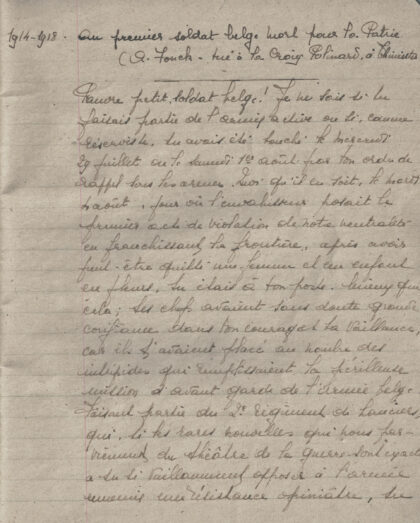 1914-1918 - Au premier soldat belge mort pour la Patrie
(A. Fonck - tué à la Croix Polinard, à Thimister
Pauvre petit soldat belge! Je ne sais si tu
faisais partie de l'armée active ou si, comme
réserviste, tu avais été touché le mercredi
29 juillet ou le samedi 1er août par ton ordre de
rappel sous les armes. Quoi qu'il en soit, le mardi
4 août, jour où l'envahisseur posait le
premier acte de violation de notre neutralité
en franchissant la frontière, après avoir
peut-être quitté une femme et un enfant
en pleurs, tu étais à ton poste. Mieux que
cela; tes chefs avaient sans doute grande
confiance dans ton courage et ta vaillance,
car ils t'avaient placé au nombre des
intrépides qui remplissaient la périlleuse
mission d'avant garde de l'armée belge.
Faisant partie du 2e régiment de lanciers,
qui, si les rares nouvelles qui nous par-
viennent du théâtre de la guerre sont exactes
a su si vaillamment opposer à l'armée
ennemie une résistance opiniâtre, tu